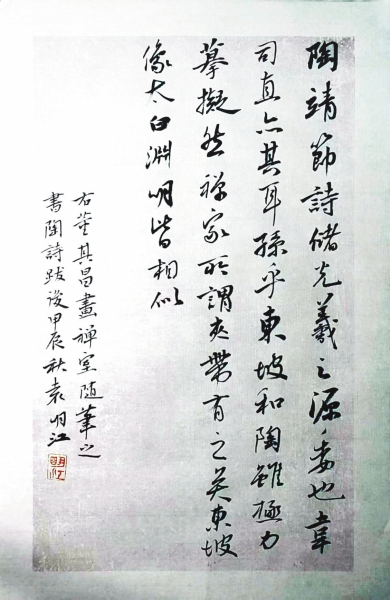 陶靖節詩儲光羲之源委也韋
司直亦其耳孫乎東坡和陶雖極力
摹擬然禪家所謂夾帶有之吳東坡
像太白淵明皆相似
右董其昌畫禪室隨筆之
書陶詩跋後甲辰秋袁明江
明江